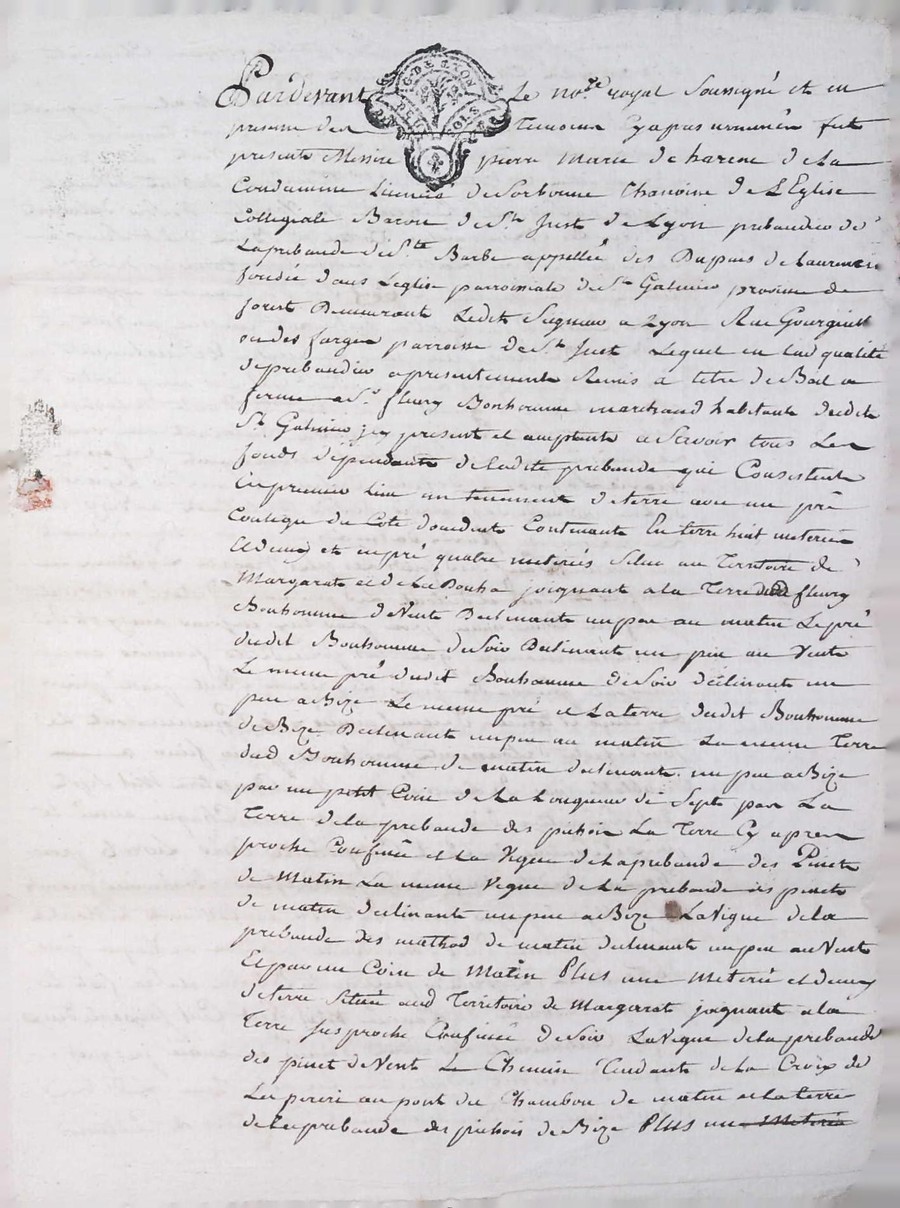 Pardevant Le no.re royal Soussigné et en
presence des Temoins Cy apres nommés fut
present Messire pierre Marie de harene de La
Condamine Licencié de Sorbonne Chanoine de L'Eglise
Collegiale Baron de St. Just de Lyon prebandier de
La prebande de Ste. Barbe appellée des Dupuis de Laurencin
fondée dans Leglise parroissiale de St. Galmier province de
forest Demeurant Ledit Seigneur a Lyon Rue
ou des farges parroisse de St. Just Lequel en lad qualité
de prebandier a presentement Remis a titre de Bail a
ferme a Sr. fleury Bonhomme marchand habitant dudit
St. Galmier jcy present et acceptant a Scavoir tous Les
fonds dependants de Ladite prebande qui Consistent
En premier Lieu en tenement de terre avec un pré
Contigue du Coté doccident Contenant En terre huit meterées
et en pré quatre meterées Situé au Territoire de
Margarat et de La Bouha joignant a la Terre dud fleury
Bonhomme de Vent Declinant un peu au matin Le pré
dudit Bonhomme de Soir Declinant un peu au Vent
Le meme pré dudit Bonhomme de Soir declinant un
peu a Bize Le meme pré et La terre dudit Bonhomme
de Bize Declinant un peu au matin La meme Terre
dud Bonhomme de matin declinant un peu a Bize
par un petit Coin de La Longueur de Sept pas La
Terre de la prebande des pichois La Terre Cy apres
proche Confinée et La Vigne de La prebande des Pinets
de Matin La meme Vigne de La prebande des pinets
de matin declinant un peu a Bize La Vigne de la
prebande des mathod de matin declinant un peu au Vent
Et par un Coin de Matin Plus une Meterée et demy
de terre Située aud Territoire de Margarat joignant a la
Terre jus proche Confinée de Soir La Vigne de La prebande
des pinet de Vent Le Chemin Tendant de La Croix de
au pont du Chambon de matin et La terre
de La prebande des pichois de Bize Plus une Meterée